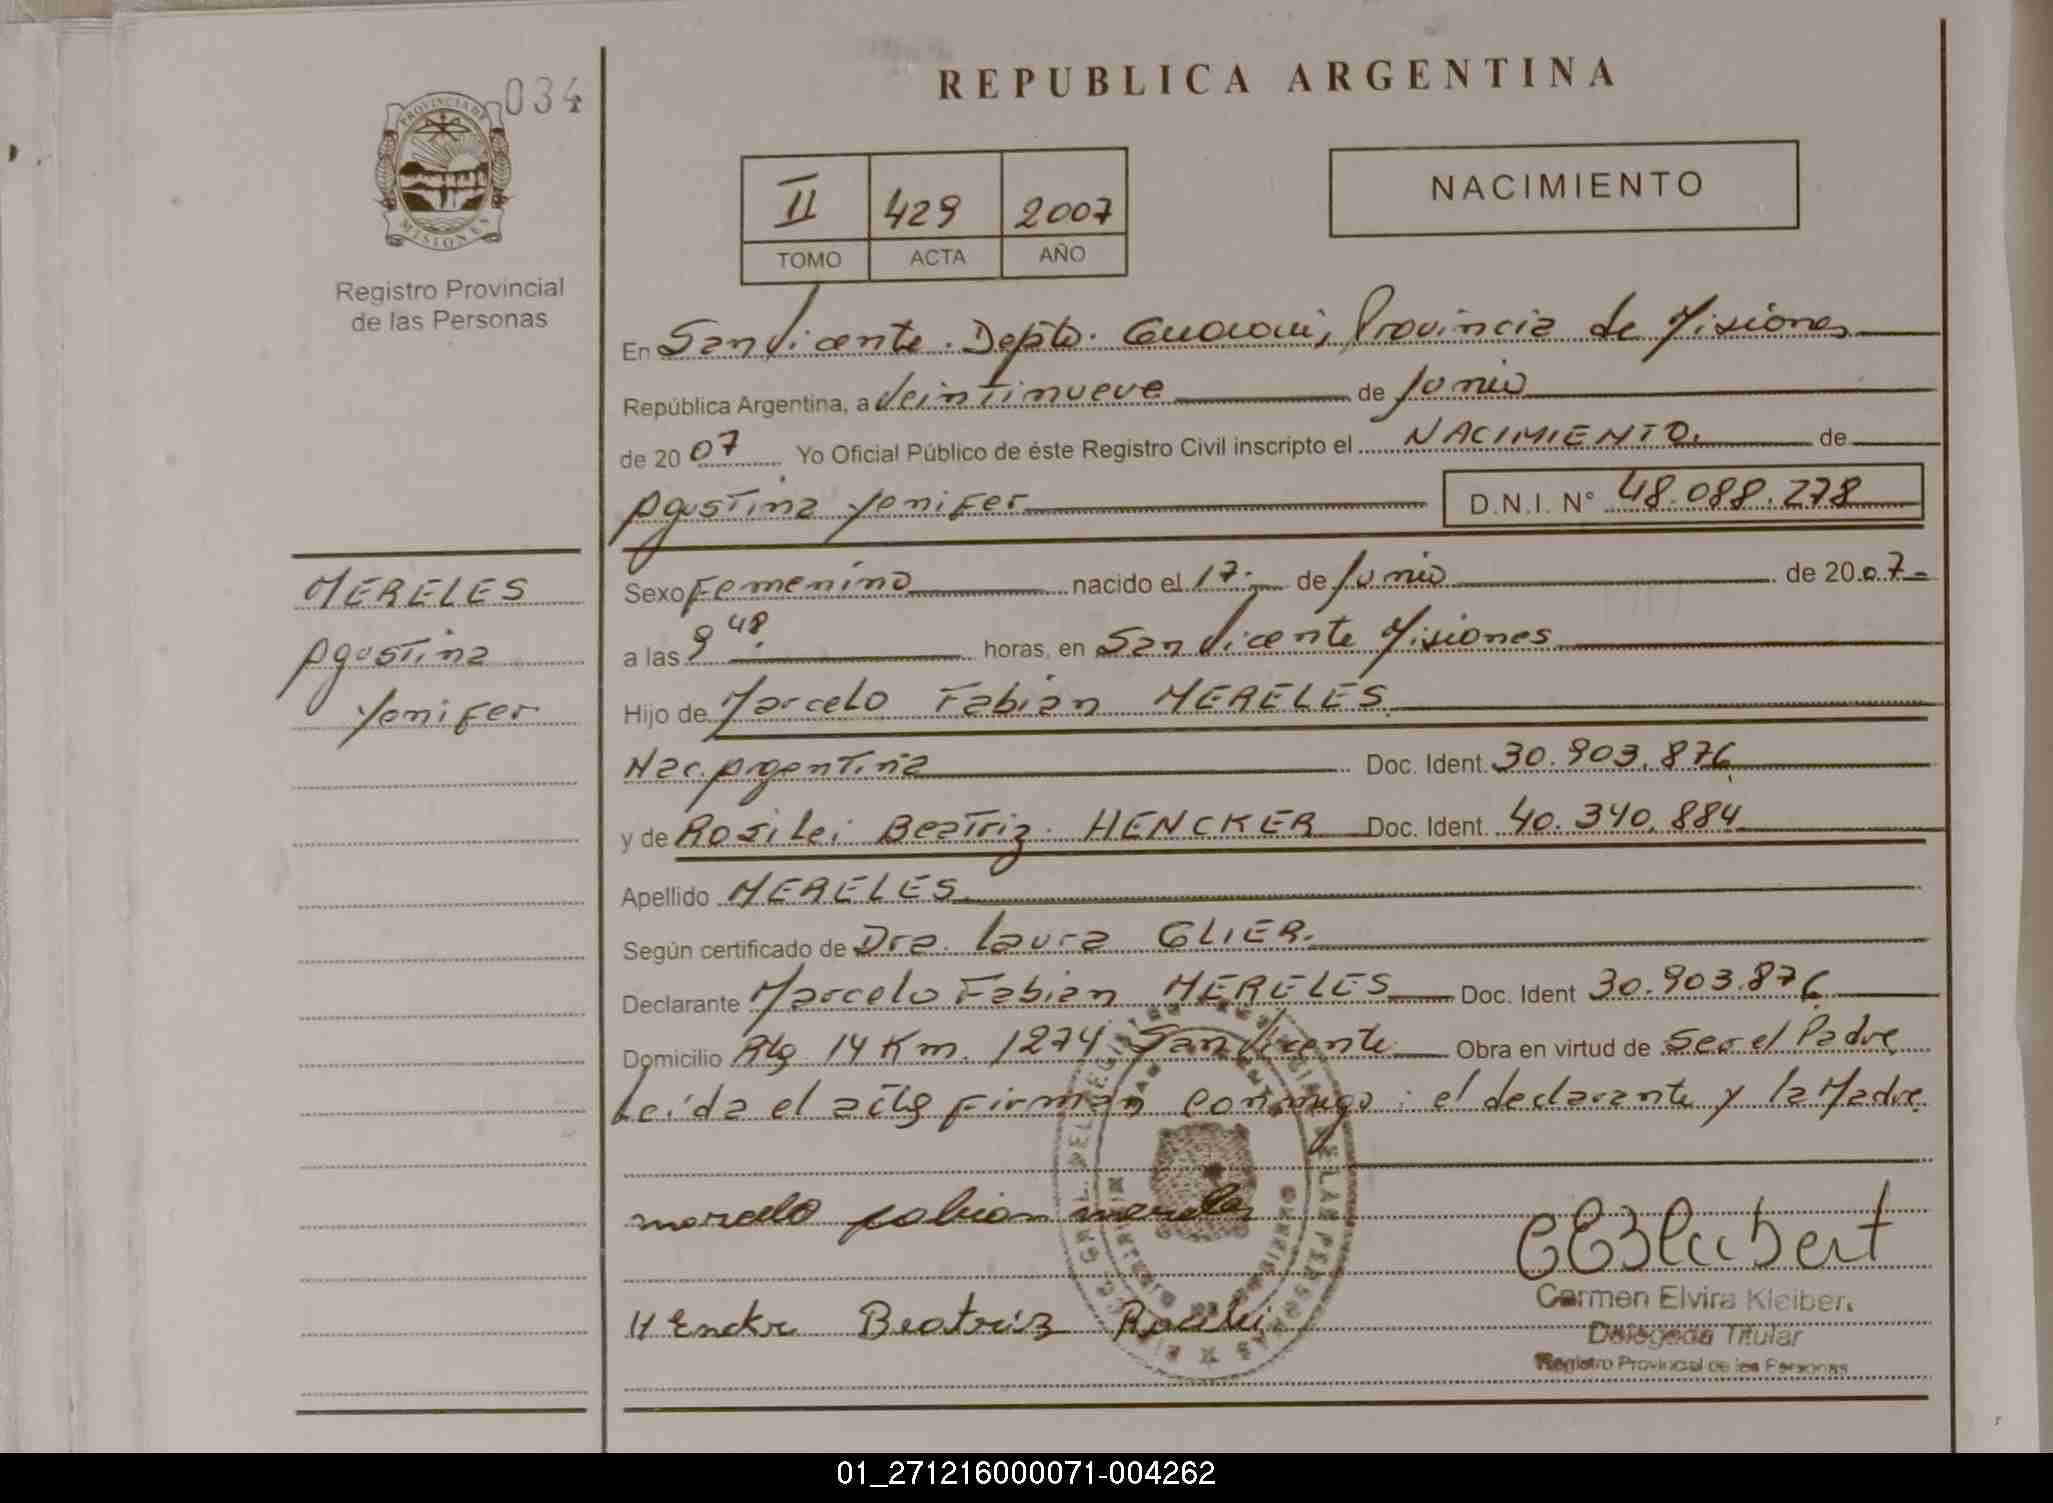 034
PROVINCIA DE
MISIONES
Registro Provincial
de las Personas
REPUBLICA ARGENTINA
II 429 2007
TOMO ACTA AÑO
NACIMIENTO
En San Vicente. Depto. Guarani, Provincia de Misiones
República Argentina, a Veintinueve de Junio
de 2007 Yo Oficial Público de éste Registro Civil inscripto el NACIMIENTO. de
Agustina Yenifer D.N.I. N° 48.088.278
MERELES
Agustina
Yenifer
Sexo Femenino nacido el 17. de Junio de 2007
a las 9 48. horas, en San Vicente Misiones
Hijo de Marcelo Fabian MERELES
Nac. Argentina Doc. Ident. 30.903.876
y de Rosilei Beatriz HENCKER Doc. Ident. 40.340.884
Apellido MERELES
Según certificado de Dra. Laura GLIER.
Declarante Marcelo Fabian MERELES Doc. Ident 30.903.876
Domicilio Rta 14 Km. 1274 San Vicente Obra en virtud de Ser el Padre
Leída el acta firman conmigo: el declarante y la Madre
marcelo fabian mereles
HEnckr Beatriz Rosilei
Carmen Elvira Kleiber
Delegada Titular
Registro Provincial de las Personas
01_271216000071-004262